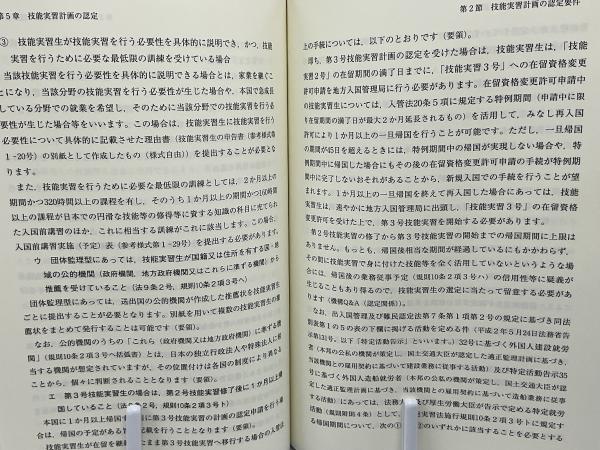 第５章　技能実習計画の認定
③　技能実習生が技能実習を行う必要性を具体的に説明でき、かつ、技能
実習を行うために必要な最低限の訓練を受けている場合
当該技能実習を行う必要性を具体的に説明できる場合とは、家業を継ぐこ
とになり、当該分野の技能実習を行う必要性が生じた場合や、本国で急成長
している分野での就業を希望し、そのために当該分野での技能実習を行う
必要性が生じた場合等をいいます。この場合は、技能実習生に技能実習を行う
必要性について具体的に記載させた理由書（技能実習生の申告書（参考様式
1-20号）の別紙として作成したもの（様式自由））を提出することが必要とな
ります。
また、技能実習を行うために必要な最低限の訓練としては、２か月以上の
期間かつ320時間以上の課程を有し、そのうち１か月以上の期間かつ160時間
以上の課程が日本での円滑な技能等の修得等に資する知識の科目に充てられ
た入国前講習のほか、これに相当する訓練がこれに該当します。この場合、
入国前講習実施（予定）表（参考様式第1-29号）を提出する必要があります。
ウ　団体監理型にあっては、技能実習生が国籍又は住所を有する国・地
域の公的機関（政府機関、地方政府機関又はこれらに準ずる機関）から
推薦を受けていること（法９条２号、規則10条２項３号へ）
団体監理型にあっては、送出国の公的機関が作成した推薦状を技能実習生
ごとに提出することが必要となります。別紙を用いて複数の技能実習生の推
薦状をまとめて発行することは可能です（要領）。
なお、公的機関のうちの「これら（政府機関又は地方政府機関）に準ずる機
関」（規則10条２項３号ヘ括弧書）とは、日本の独立行政法人や特殊法人に相
当する機関が想定されていますが、その位置付けは各国の制度により異なる
ことから、個々に判断されることとなります（要領）。
エ　第３号技能実習生の場合は、第２号技能実習修了後に１か月以上帰
国していること（法９条２号、規則10条２項３号ト）
本国に１か月以上帰国する前に第３号技能実習の計画の認定申請を行う場
合は、帰国の予定がある旨を記載を行うこととなります（要領）。
技能実習生が在留を継続したまま第３号技能実習へ移行する場合の入管法
第２節　技能実習計画の認定要件
上の手続については、以下のとおりです（要領）。
即ち、第３号技能実習計画の認定を受けた場合は、技能実習生は、「技能
実習２号」の在留期間の満了日までに、「技能実習３号」への在留資格変更
許可申請を地方入国管理局に行う必要があります。在留資格変更許可申請中
の技能実習生については、入管法20条５項に規定する特例期間（申請中に限
り在留期間の満了日が最大２か月延長されるもの）を活用して、みなし再入国
許可により１か月以上の一旦帰国を行うことが可能です。ただし、一旦帰国
の期間が45日を超えるときには、特例期間中の帰国が実現しない場合や、特
例期間中に帰国した場合にもその後の在留資格変更許可申請の手続が特例期
間中に完了しないおそれがあることから、新規入国での手続を行うことが望
まれます。１か月以上の一旦帰国を終えて再入国した場合にあっては、技能
実習生は、速やかに地方入国管理局に出頭し、「技能実習３号」の在留資格
変更許可を受けた上で、第３号技能実習を開始する必要があります。
第２号技能実習の修了から第３号技能実習の開始までの帰国期間に上限は
ありません。もっとも、帰国後相当な期間が経過しているにもかかわらず、
その間に技能実習で身に付けた技能等を全く活用していないというような場
合には、帰国後の業務従事予定（規則10条２項３号ハ）の信用性等に疑義が
生じることもあり得るので、技能実習生の選定に当たって留意する必要があ
ります（機構Q&A（認定関係））。
なお、出入国管理及び難民認定法第７条第１項第２号の規定に基づき同法
別表第１の５の表の下欄に掲げる活動を定める件（平成２年５月24日法務省告
示第131号。以下「特定活動告示」といいます。）32号に基づく外国人建設就労
者（本邦の公私の機関が策定し、国土交通大臣が認定した適正監理計画に基づき、
当該機関との雇用契約に基づいて建設業務に従事する活動）及び特定活動告示35
号に基づく外国人造船就労者（本邦の公私の機関が策定し、国土交通大臣が認
定した適正監理計画に基づき、当該機関との雇用契約に基づいて造船業務に従事
する活動）にあっては、法務大臣及び厚生労働大臣が告示で定める特定就労
活動（規則附則４条）として、技能実習法施行規則10条２項３号トに規定す
る帰国期間について、次の①